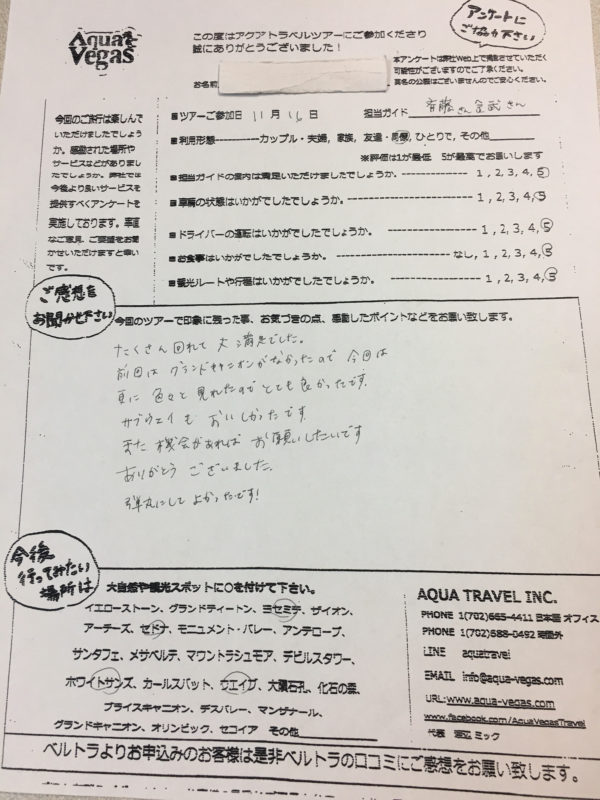 Aqua Vegas
この度はアクアトラベルツアーにご参加くださり
誠にありがとうございました！
アンケートに
ご協力下さい
本アンケートは弊社Web上で掲載させていただく
可能性がございますのでご了承ください。
実名の公開はございませんのでご安心ください。
お名前
今回のご旅行は楽しんで
いただけましたでしょう
か。感動された場所や
サービスなどがありまし
たでしょうか。弊社では
今後より良いサービスを
提供すべくアンケートを
実施しております。率直
なご意見、ご要望をお聞
かせいただけますと幸い
です。
■ツアーご参加日 11月16日 担当ガイド 斉藤さん 金武さん
■利用形態------------カップル・夫婦，家族，友達・同僚，ひとりで，その他
※評価は1が最低 5が最高でお願いします
■担当ガイドの案内は満足いただけましたでしょうか。---------------- 1，2，3，4，5
■車輌の状態はいかがでしたでしょうか。---------------- 1，2，3，4，5
■ドライバーの運転はいかがでしたでしょうか。---------------- 1，2，3，4，5
■お食事はいかがでしたでしょうか。---------------- なし，1，2，3，4，5
■観光ルートや行程はいかがでしたでしょうか。---------------- 1，2，3，4，5
ご感想を
お聞かせ下さい
今回のツアーで印象に残った事、お気づきの点、感動したポイントなどをお願い致します。
たくさん回れて大満足でした。
前回はグランドキャニオンがなかったので今回は
更に色々と見れたのでとても良かったです。
サブウェイもおいしかったです。
また機会があればお願いしたいです
ありがとうございました。
弾丸にしてよかったです！
今後
行ってみたい
場所は
大自然や観光スポットに○を付けて下さい。
イエローストーン、グランドティートン、ヨセミテ、ザイオン、
アーチーズ、セドナ、モニュメント・バレー、アンテロープ、
サンタフェ、メサベルテ、マウントラシュモア、デビルスタワー、
ホワイトサンズ、カールスバット、ウエイブ、大隕石孔、化石の森、
ブライスキャニオン、デスバレー、マンザナール、
グランドキャニオン、オリンピック、セコイア その他
AQUA TRAVEL INC.
PHONE 1(702)665-4411 日本語 オフィス
PHONE 1(702)588-0492 時間外
LINE aquatravel
EMAIL info@aqua-vegas.com
URL:www.aqua-vegas.com
www.facebook.com/AquaVegasTravel
代表 ミック
ベルトラよりお申込みのお客様は是非ベルトラの口コミにご感想をお願い致します。